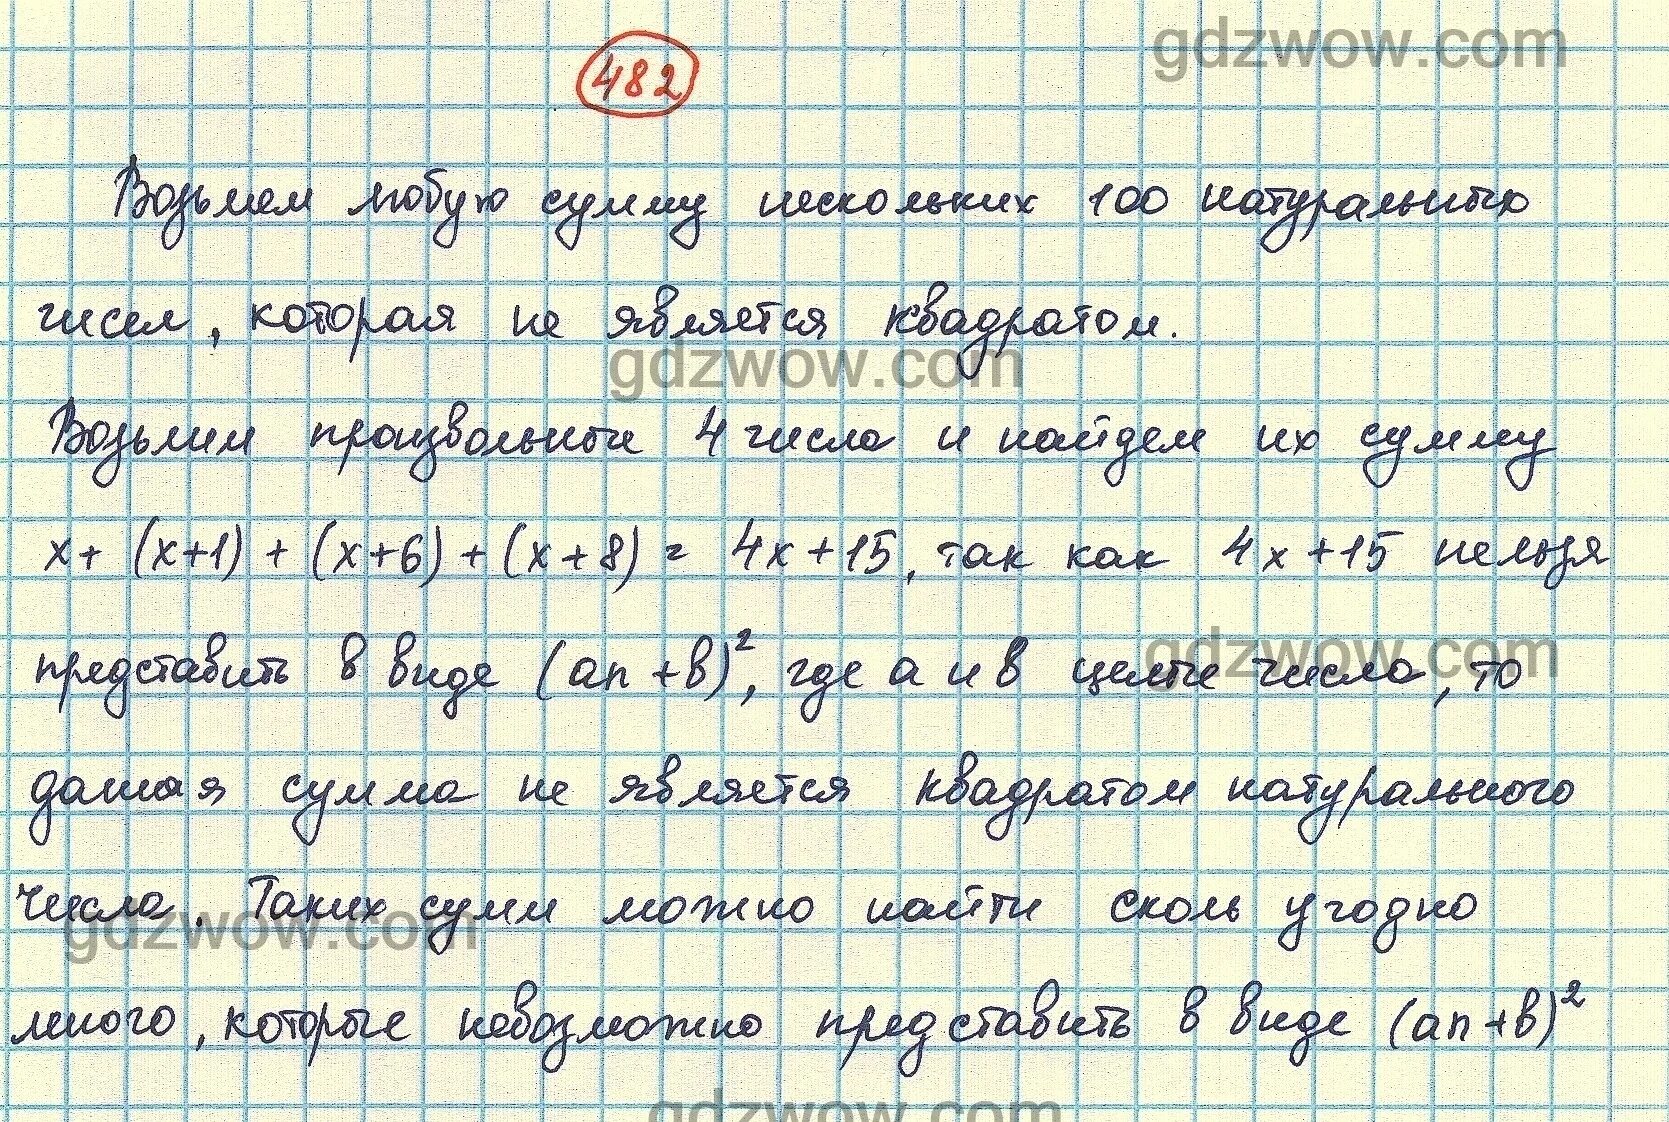 gdzwow.com
482
Возьмем любую сумму нескольких 100 натуральных
чисел, которая не является квадратом.
gdzwow.com
Возьмим произвольные 4 числа и найдем их сумму
x + (x+1) + (x+6) + (x+8) = 4x+15, так как 4x+15 нельзя
представить в виде (an+b)², где a и b целые числа, то
gdzwow.com
данная сумма не является квадратом натурального
числа. Таких сумм можно найти сколь угодно
gdzwow.com
много, которые невозможно представить в виде (an+b)²
gdzwow.com